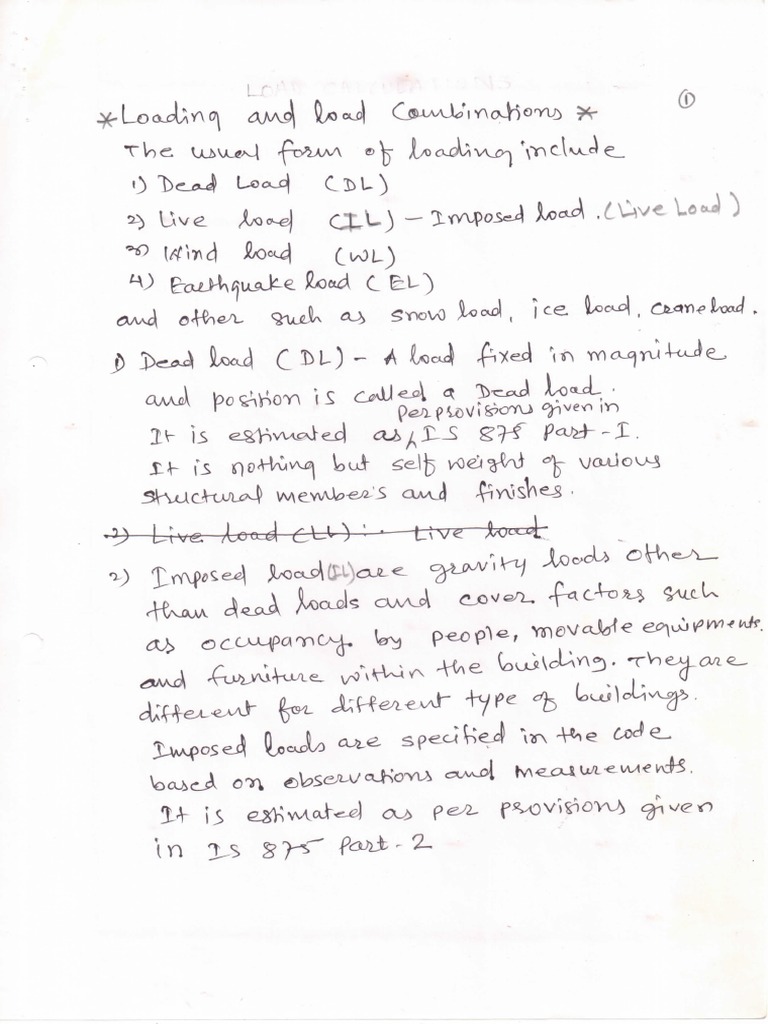 ①
*Loading and load Combinations*
The usual form of loading include
1) Dead Load (DL)
2) Live load (IL) – Imposed load. (Live Load)
3) Wind load (WL)
4) Earthquake load (EL)
and other such as snow load, ice load, crane load.
1) Dead load (DL) – A load fixed in magnitude
and position is called a Dead load.
per provisions given in
It is estimated as IS 875 Part-I.
It is nothing but self weight of various
structural member's and finishes.
2) Live load (LL):- Live load
2) Imposed load (IL) are gravity loads other
than dead loads and cover factors such
as occupancy by people, movable equipments.
and furniture within the building. They are
different for different type of buildings.
Imposed loads are specified in the code
based on observations and measurements.
It is estimated as per provisions given
in IS 875 Part-2